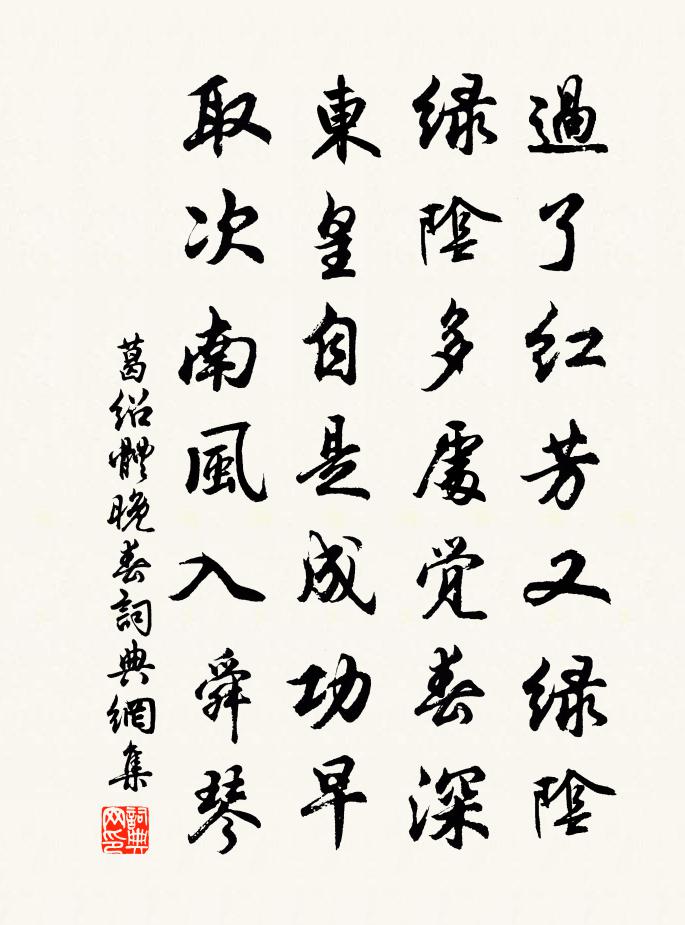 過了紅芳又緑陰
緑陰多處覚春深
東皇自是成功早
取次南風入舜琴
葛紹體晚春詞典網集
詞典网印